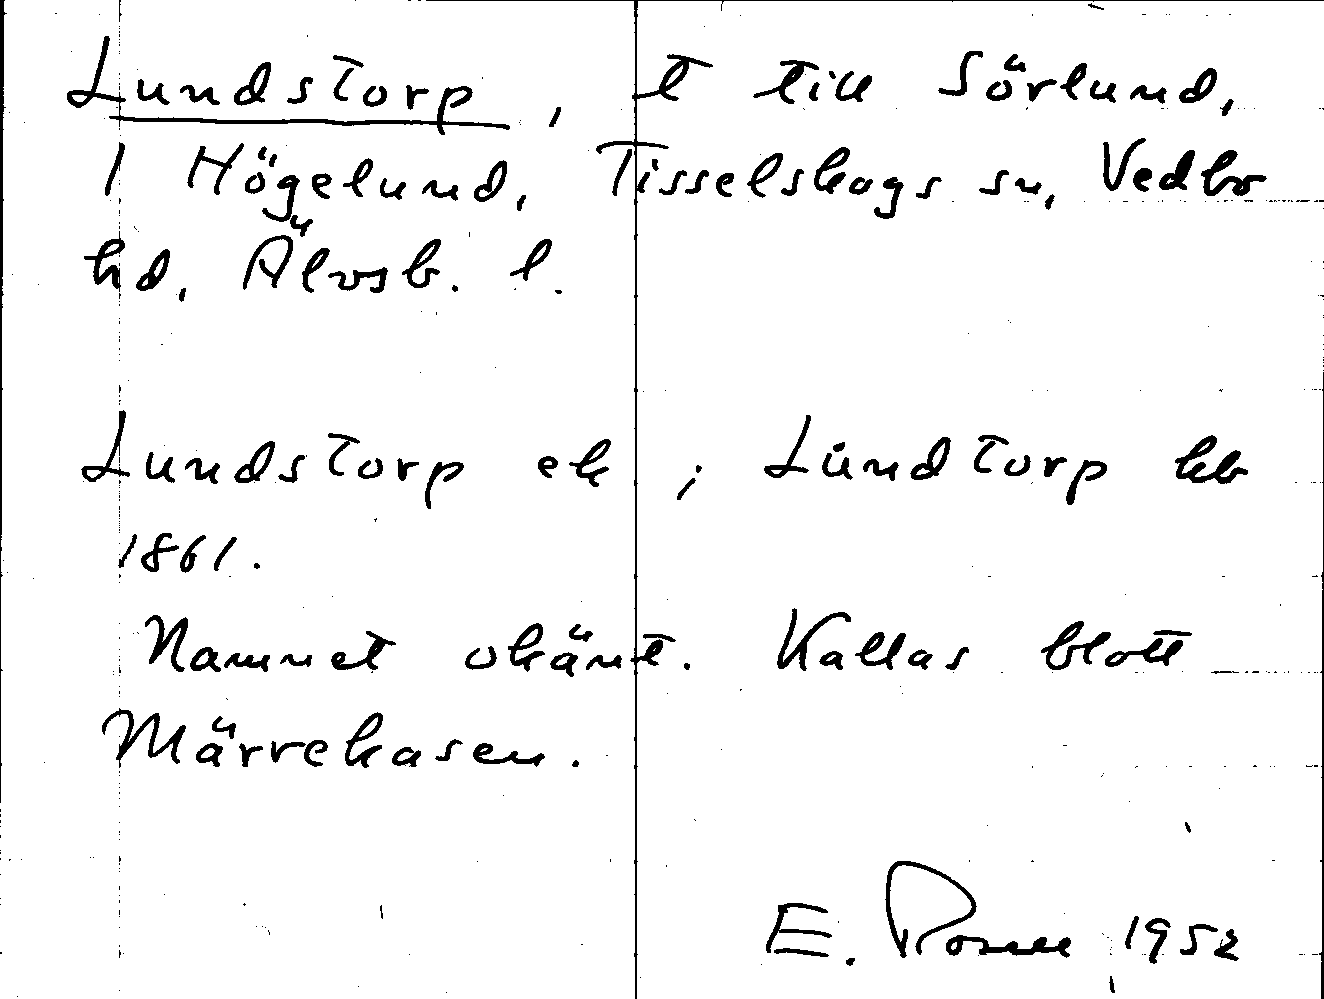 Lundstorp, t till Sörlund,
1 Högelund, Tisselskogs sn, Vedbo
hd, Älvsb. l.
Lundstorp ek ; Lundtorp kb
1861.
Namnet okänt. Kallas blott
Märrekasen.
E. Rosell 1952